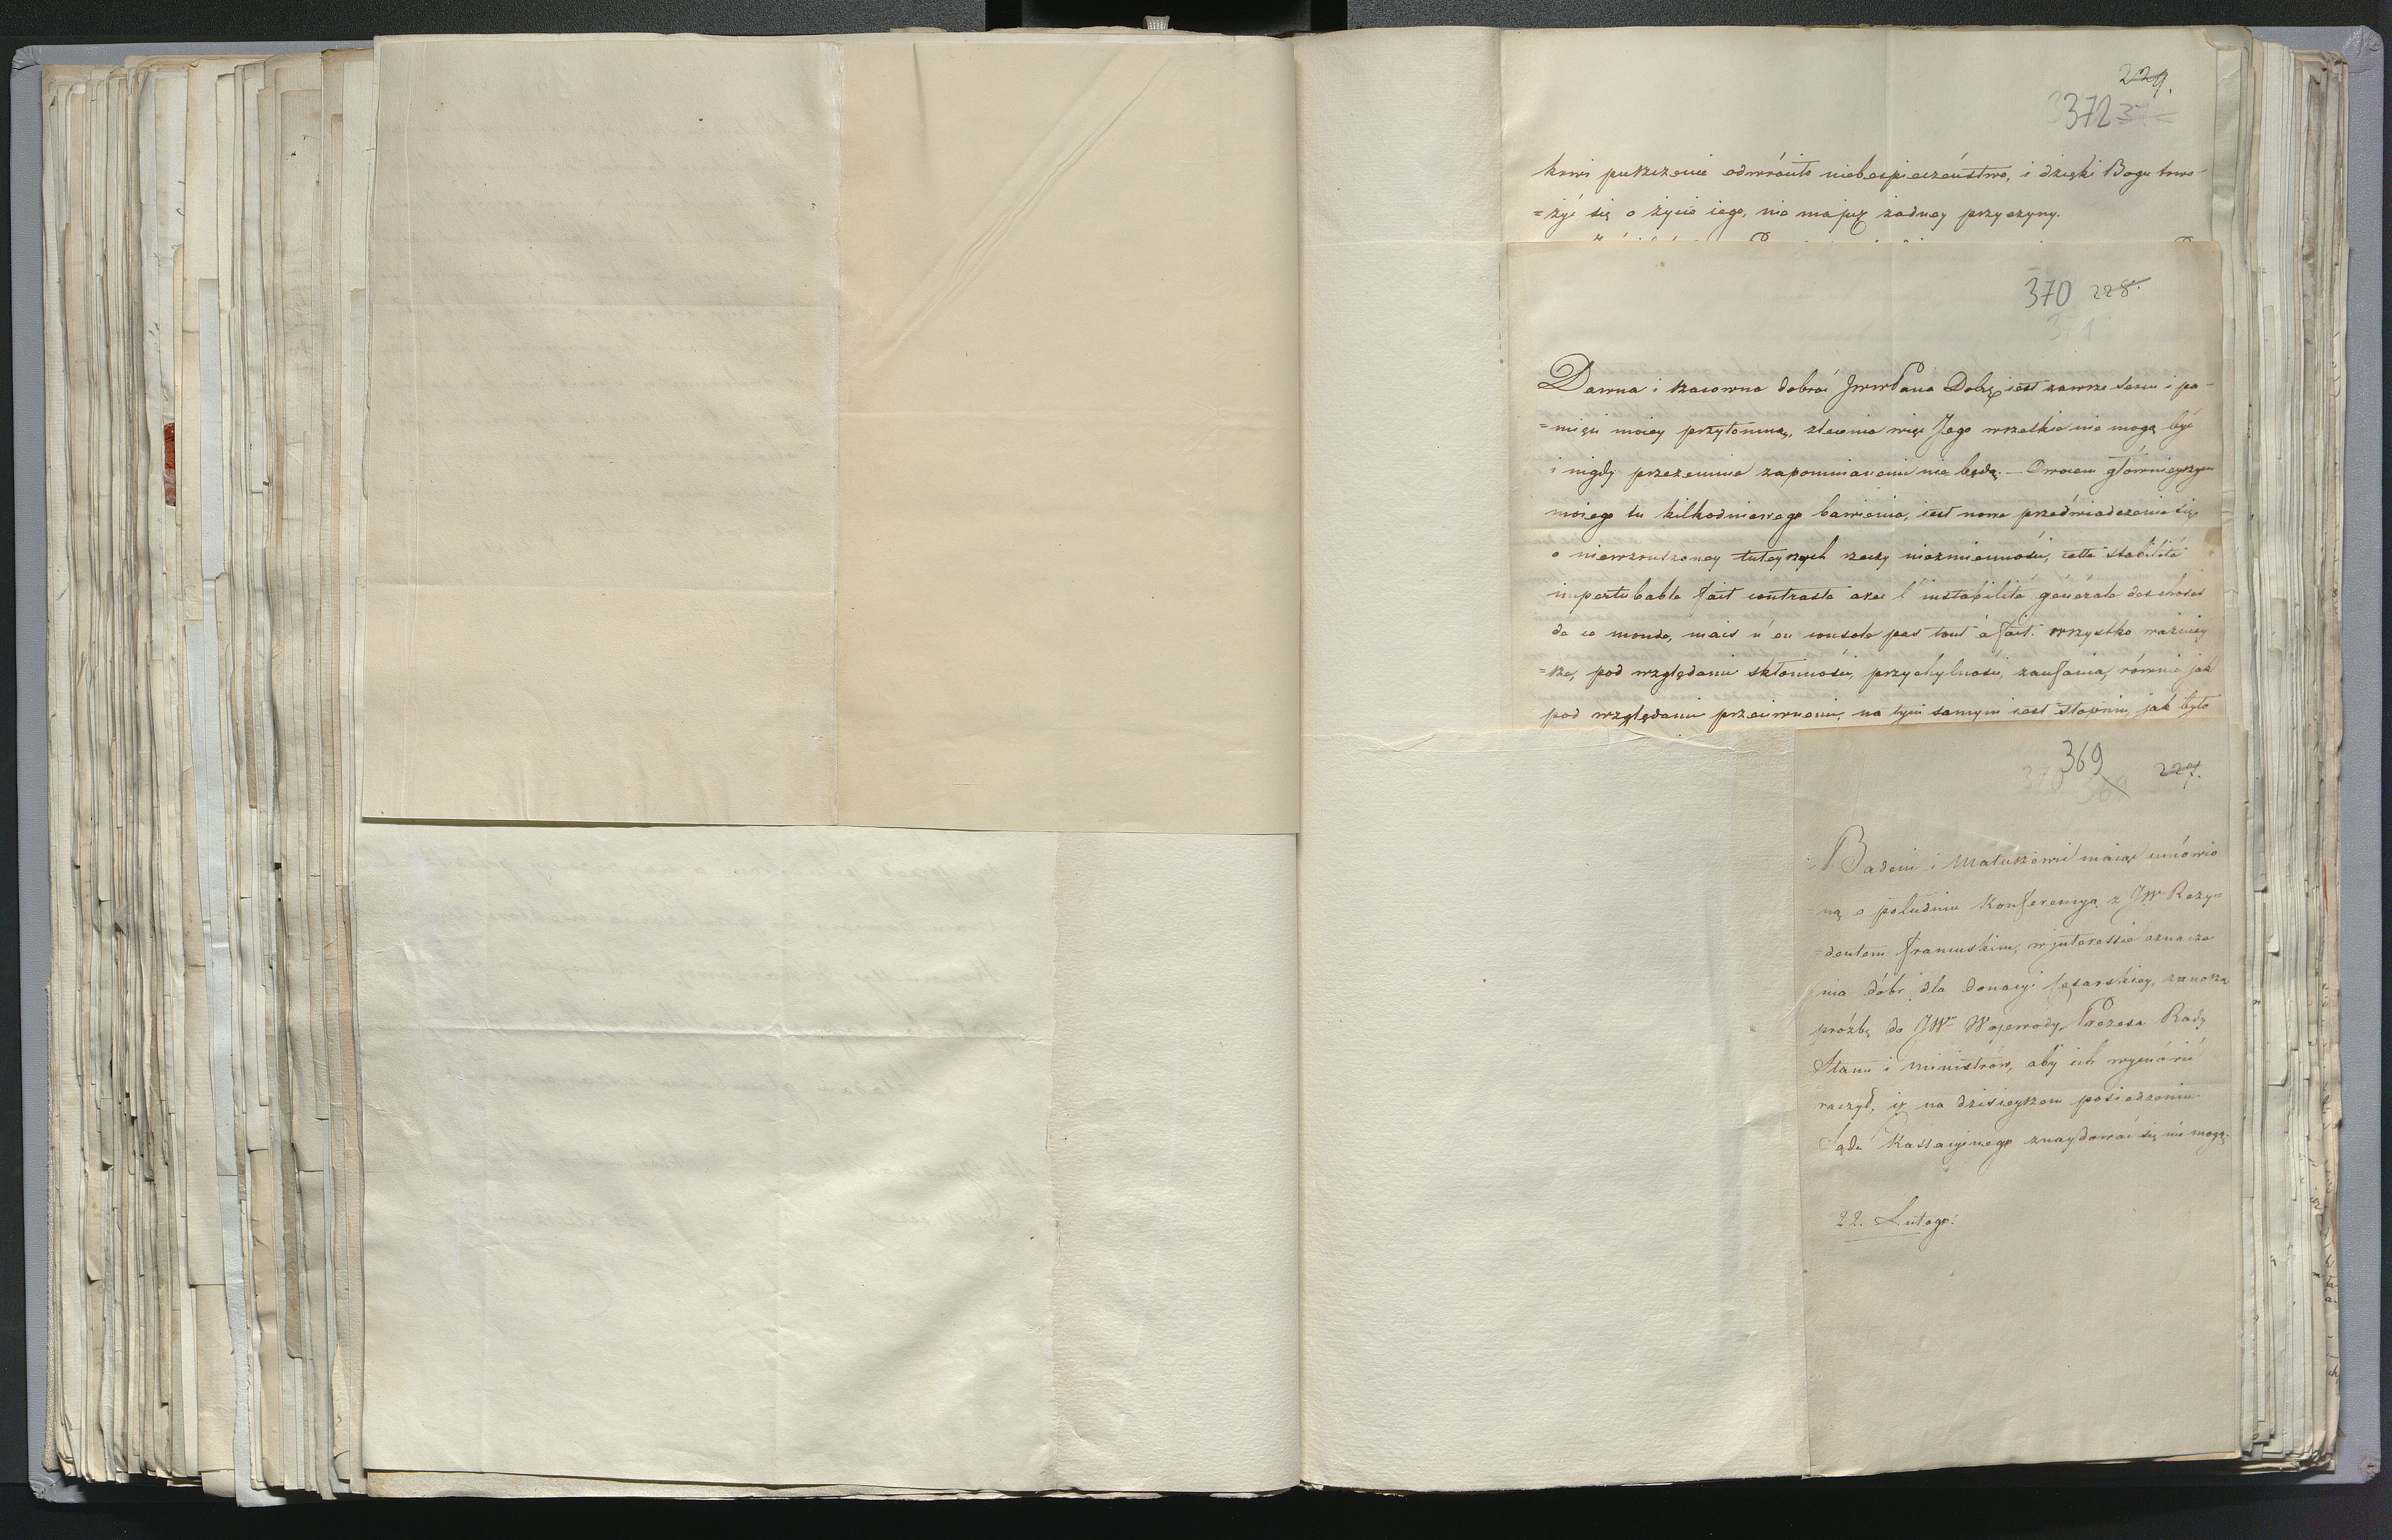 229.
372
krwi puszczenie odwróciło niebespieczeństwo, i dzięki Bogu trwo-
=żyć się o życie iego, nie mająę żadney przyczyny.
370 228.
371
Dawna i szacowna dobroć JWWPana Dobrę iest zawsze sercu i pa-
=mięci moiey przytomną, zlecenia więc Jego wszelkie nie mogą być
i nigdy przezemnie zapomnianemi nie będą. — Owocem główniejszym
moiego tu kilkodniowego bawienia, iest nowe przeświadczenie się
o niewzruszoney tuteyszych rzeczy niezmienności, cette stabilité
impertubable fait contraste avec l'instabilité générale des choses
de ce monde, mais n'en console pas tout à fait. wszystko ważniey
=sze, pod względami skłonności, przychylności, zaufania, równie jak
pod względami przeciwnemi, na tym samym iest stopniu, jak było
369 227.
Badeni i Matuszewic maiąc umówio
=ną o południu Konferencyą z JW Rezy=
=dentem francuskim, w interessie oznacze
nia dóbr dla donacyi Cesarskiey, zanoszą
prożbę do JWo Wojewody, Prezesa Rady
Stanu i Ministrów, aby ich wymówić
raczył, iż na dzisieyszem posiedzeniu
Sądu Kassacyinego znaydować się nie mogą.
22. Lutego.